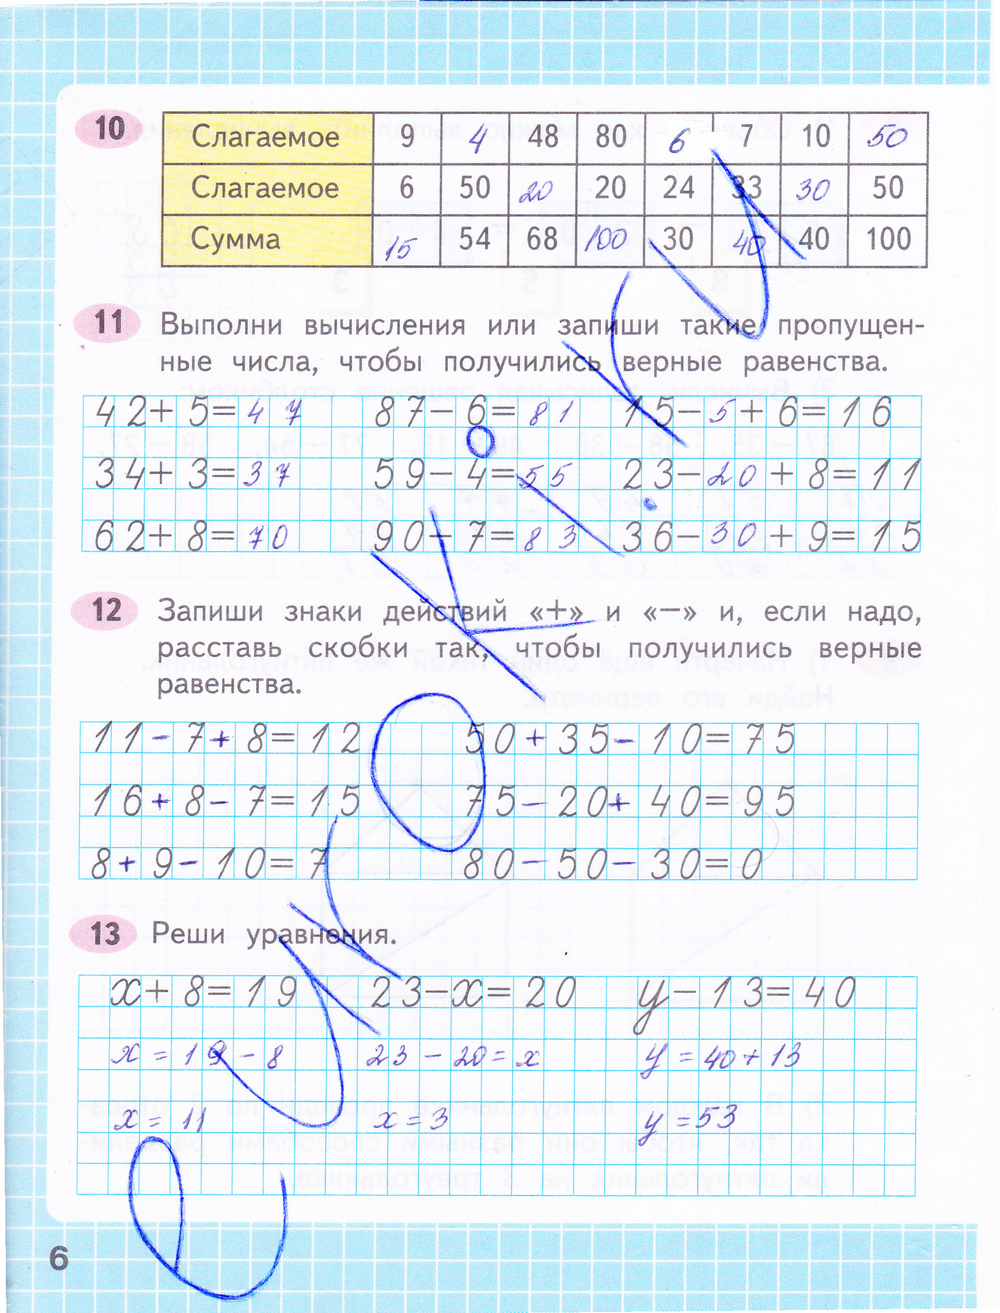 10
Слагаемое 9 4 48 80 6 7 10 50
Слагаемое 6 50 20 20 24 33 30 50
Сумма 15 54 68 100 30 40 40 100
11 Выполни вычисления или запиши такие пропущен-
ные числа, чтобы получились верные равенства.
42+5=47 87-6=81 15-5+6=16
34+3=37 59-4=55 23-20+8=11
62+8=70 90-7=83 36-30+9=15
12 Запиши знаки действий «+» и «−» и, если надо,
расставь скобки так, чтобы получились верные
равенства.
11-7+8=12 50+35-10=75
16+8-7=15 75-20+40=95
8+9-10=7 80-50-30=0
13 Реши уравнения.
x+8=19 23-x=20 y-13=40
x=19-8 23-20=x y=40+13
x=11 x=3 y=53
6